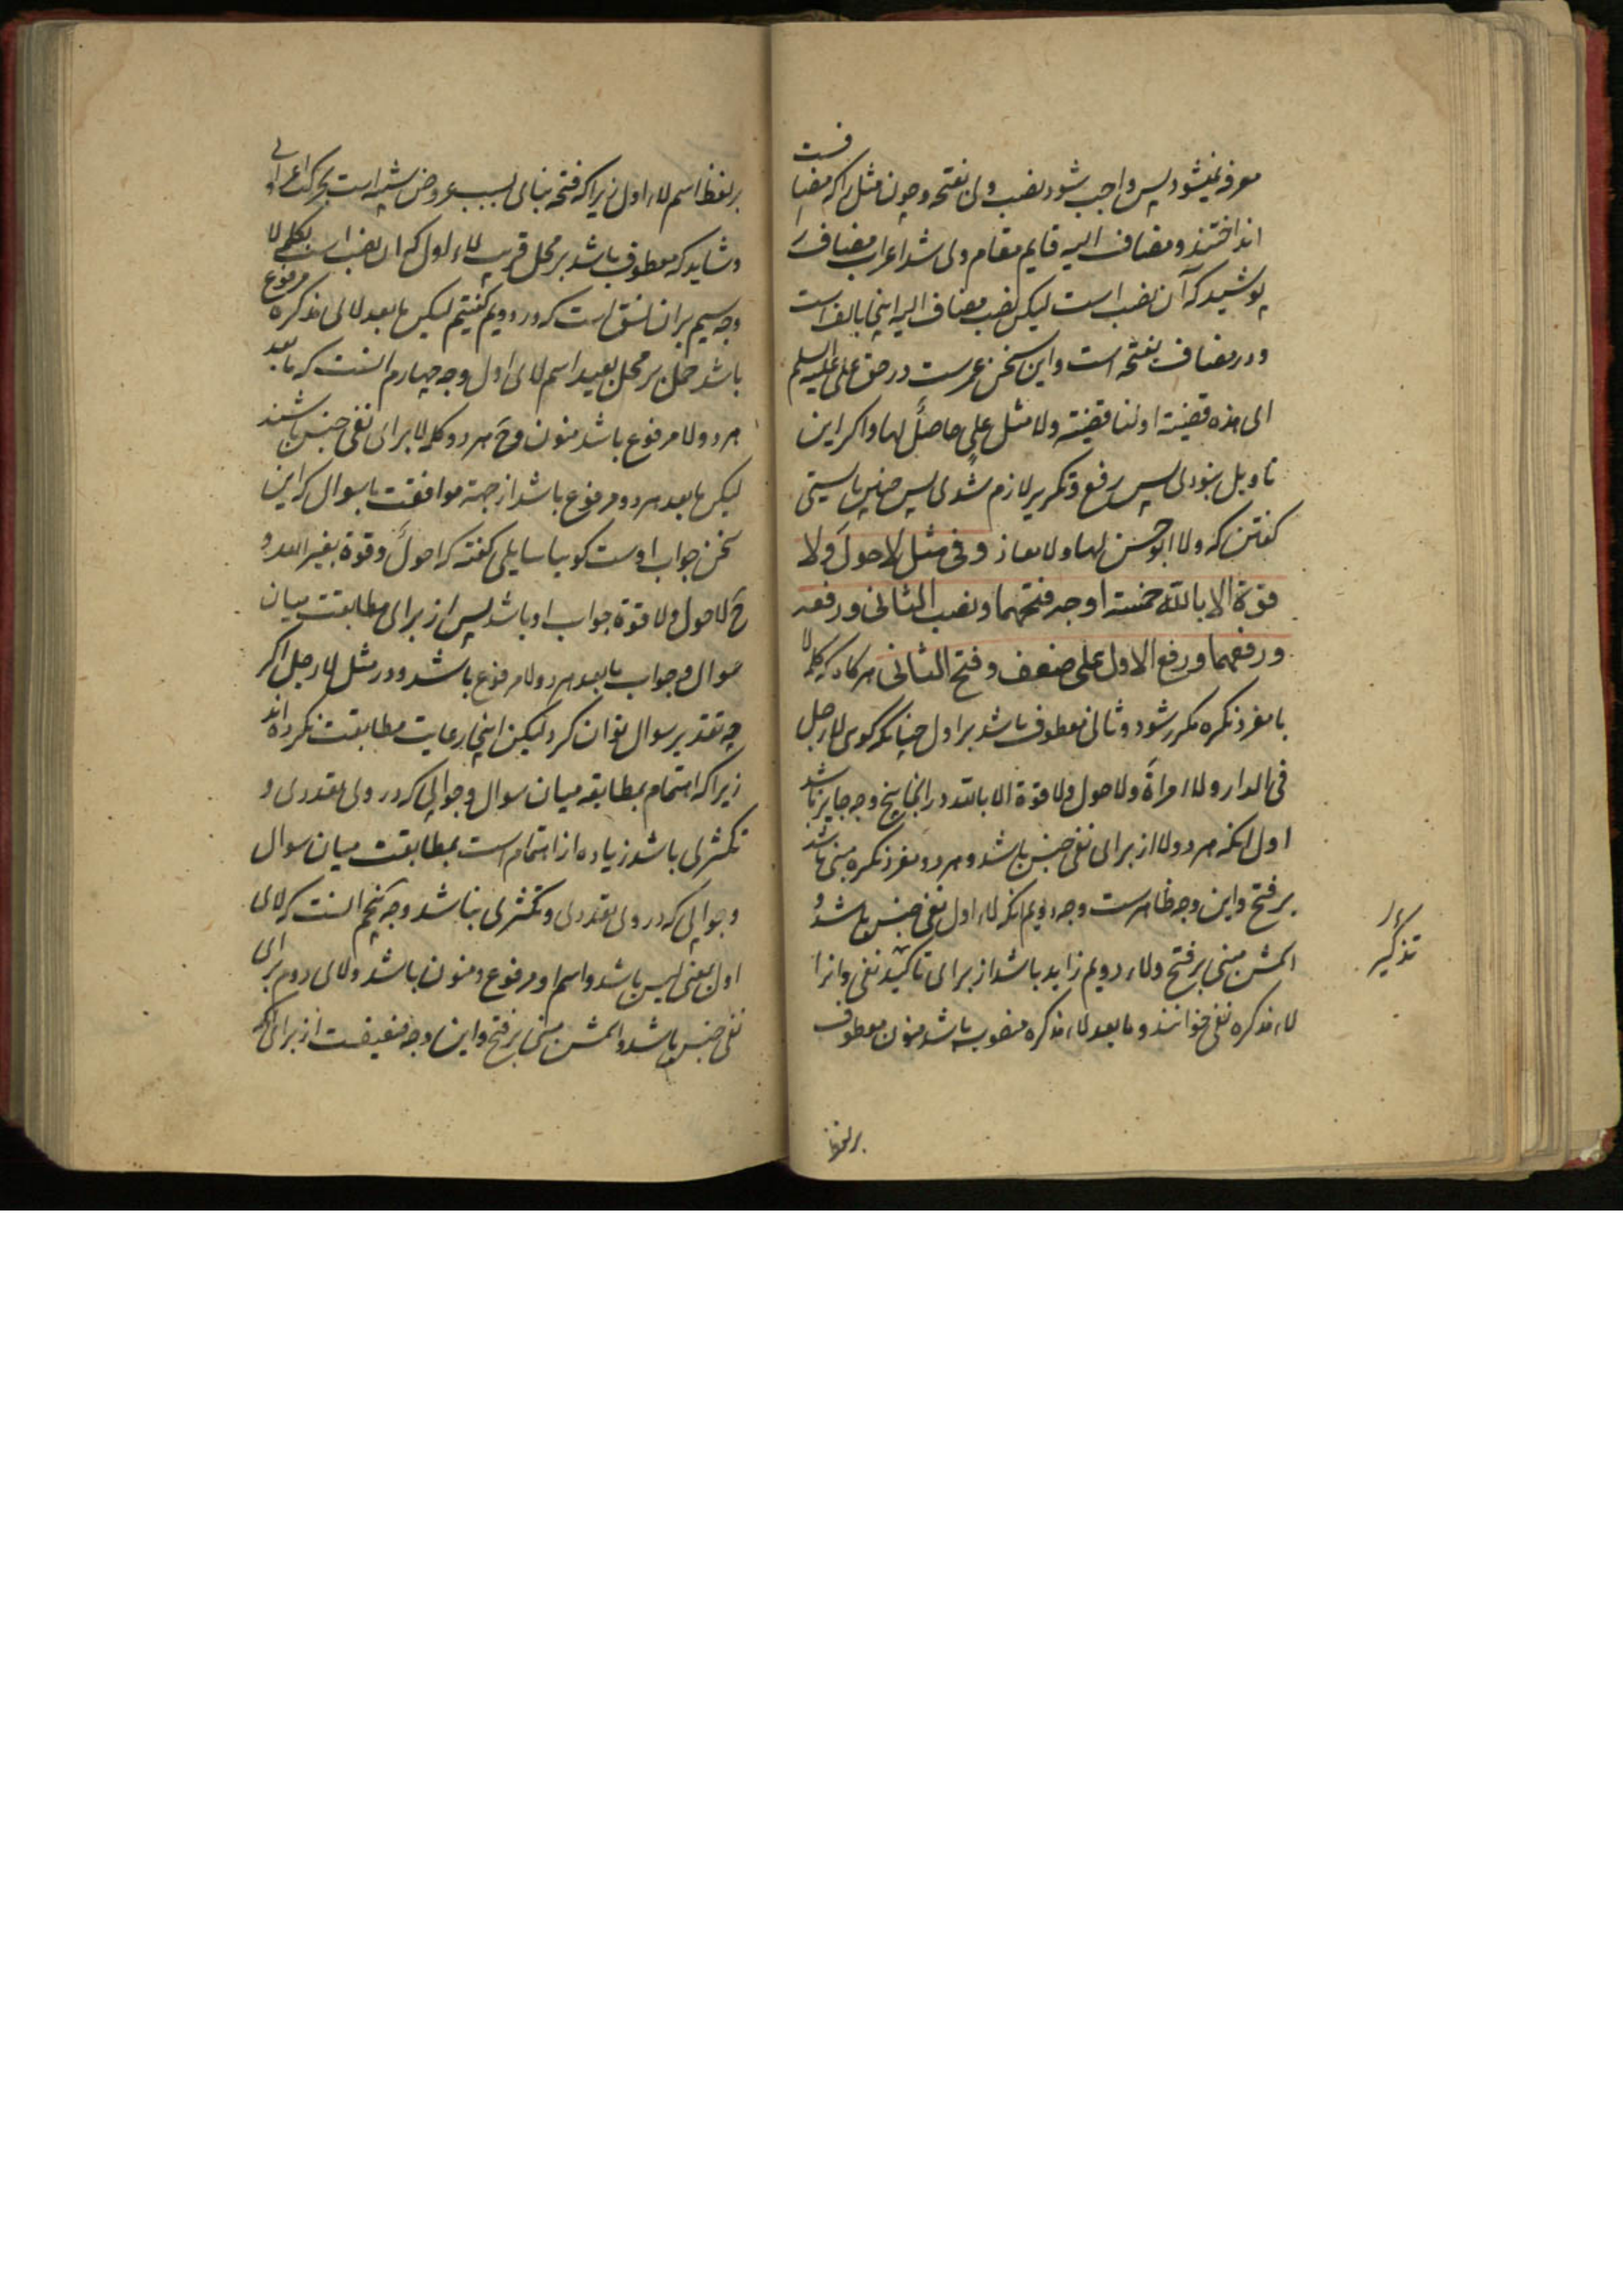 معرفه نمیشود پس واجب شود نصب وی بفتحه و چون مثل را که مضافست
انداختند و مضاف الیه قایم مقام وی شد اعراب مضاف را
پوشید که آن نصب است لیکن نصب مضاف الیه اینجا بالف است
و در مضاف بفتحه است و این سخن عمرست در حق علی علیه السلم
ای هذه قضیته او لنا قضیته ولا مثل علی حاصل لها و اکر این
تاویل نبودی پس رفع و تکریر لازم شدی پس چنین بایستی
کفتن که ولا ابو حسن لها ولا معاذ و فی مثل لا حول ولا
قوة الا بالله خمسة اوجه فتحهما و نصب الثانی و رفعه
و رفعهما و رفع الاول علی ضعف و فتح الثانی هر کاه که کلمه لا
با مفرد نکره مکرر شود و ثانی معطوف باشد بر اول چنانکه کوی لا رجل
فی الدار ولا امراة ولا حول ولا قوة الا بالله در اینجا پنج وجه جایز باشد
اول انکه هر دو لا از برای نفی جنس باشد و هر دو مفرد نکره مبنی باشد
بر فتح و این وجه ظاهرست وجه دویم انکه لاء اول نفی جنس باشد و
اسمش مبنی بر فتح ولاء دویم زاید باشد از برای تاکید نفی و انرا
لاء مذکره نفی خوانند و ما بعد لاء مذکره منصوب باشد منون معطوف
تذکیر
بر لفظ
بر لفظ اسم لاء اول زیرا که فتحه بنای بسبب عروض شبیه است بحرکت اعرابی
و شاید که معطوف باشد بر محل قریب لاء اول که ان نصب است بکلمه لا
وجه سیم بران نسق است که در دویم کفتیم لیکن ما بعد لای مذکره مرفوع
باشد حمل بر محل بعید اسم لای اول وجه چهارم انست که ما بعد
هر دو لا مرفوع باشد منون و ح هر دو کلمه لا برای نفی جنس باشند
لیکن ما بعد هر دو مرفوع باشد از جهة موافقت با سوال که این
سخن جواب اوست کویا سایلی کفته که احول و قوة بغیر الله و
ح لا حول ولا قوة جواب او باشد پس از برای مطابقت میان
سوال و جواب ما بعد هر دو لا مرفوع باشد و در مثل لا رجل اکر
چه تقدیر سوال توان کرد لیکن اینجا رعایت مطابقت نکرده اند
زیرا که اهتمام بمطابقه میان سوال و جوابی که در وی تعددی و
تکثری باشد زیاده از اهتمام است بمطابقت میان سوال
و جوابی که در وی تعددی و تکثری نباشد وجه پنجم انست که لای
اول بمعنی لیس باشد و اسم او مرفوع و منون باشد ولای دوم برای
نفی جنس باشد و اسمش مبنی بر فتح و این وجه ضعیفست از برای انکه